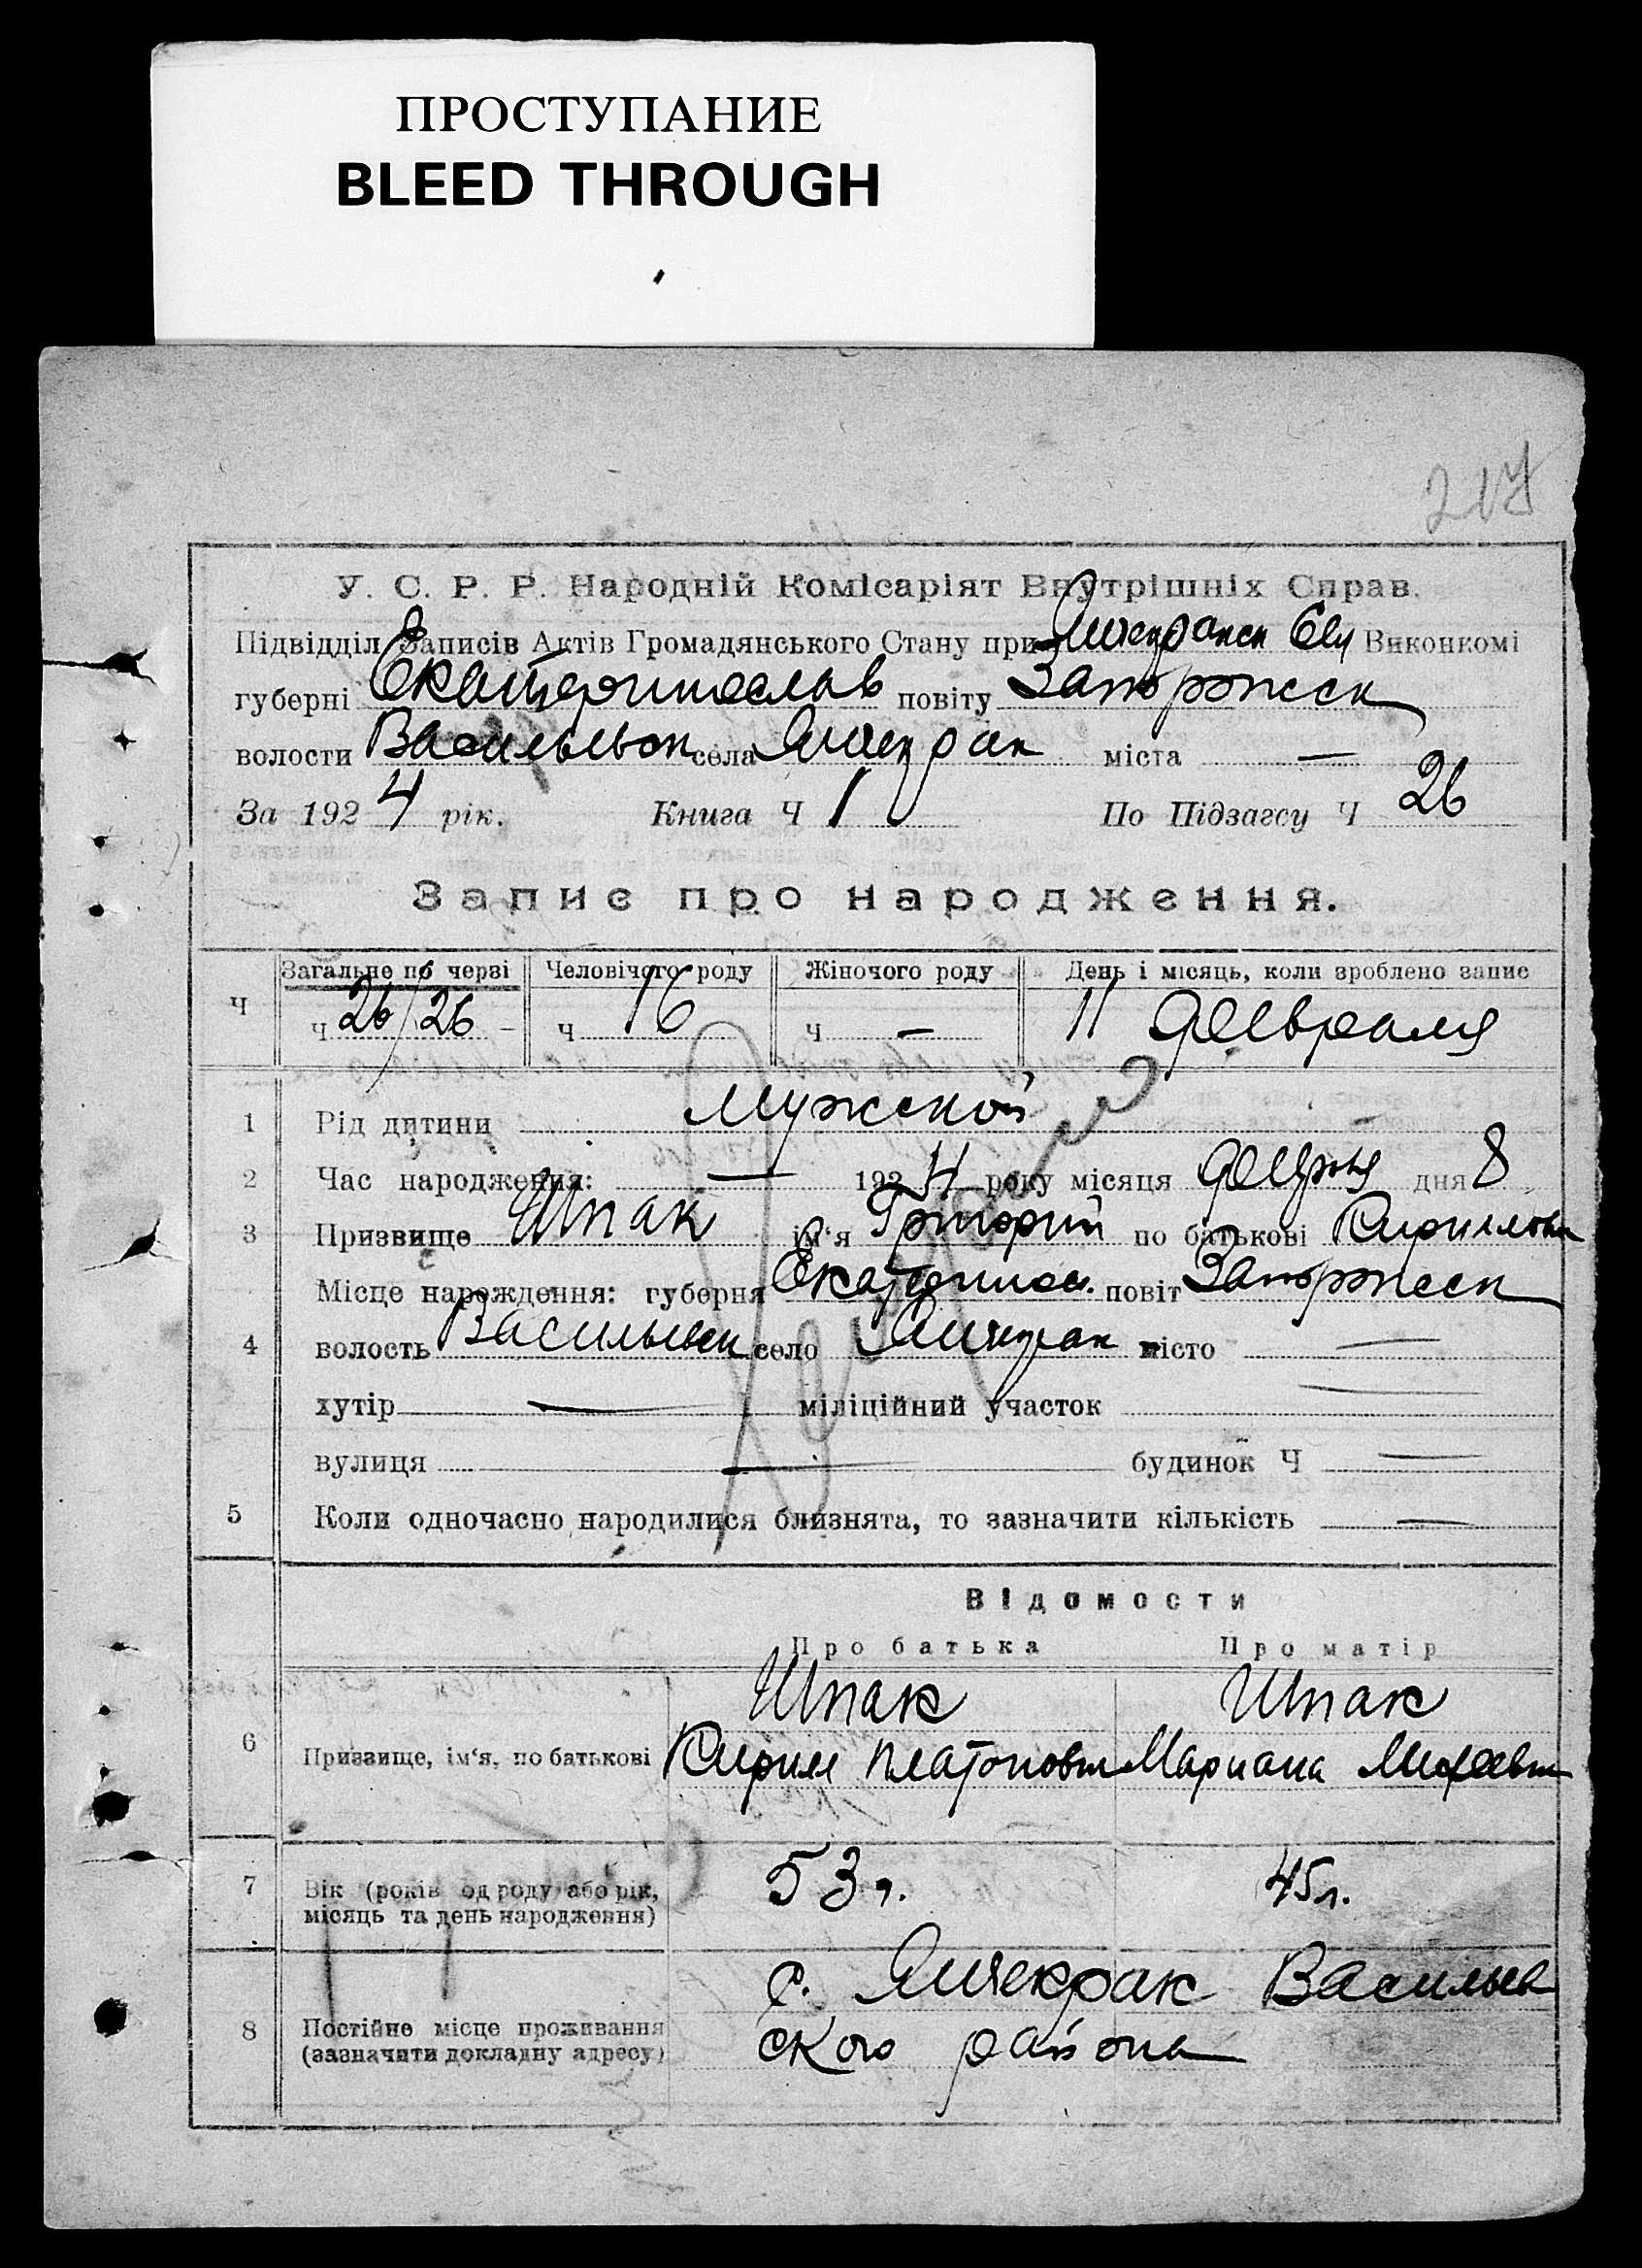 ПРОСТУПАНИЕ
BLEED THROUGH
217
У. С. Р. Р. Народній Комісаріят Внутрішніх Справ.
Підвідділ Записів Актів Громадянського Стану при Янчекракск Сел Виконкомі
губерні Екатеринослав повіту Запорожск
волости Васильевск села Янчекрак міста —
За 1924 рік. Книга Ч 1 По Підзагсу Ч 26
Запис про народження.
Загальне по черзі Человічого роду Жіночого роду День і місяць, коли зроблено запис
Ч ч 26/26 ч 16 ч — 11 февраля
1 Рід дитини Мужской
2 Час народження: — 1924 року місяця февраля дня 8
3 Призвище Шпак ім'я Григорий по батькові Кирилович
Місце нарождення: губерня Екатеринос. повіт Запорожск
4 волость Васильевск село Янчекрак місто —
хутір — міліційний участок —
вулиця — будинок Ч —
5 Коли одночасно народилися близнята, то зазначити кількість —
Відомости
Про батька Про матір
Шпак Шпак
6 Призвище, ім'я, по батькові Кирил Платонович Мариана Михеевна
7 Вік (років од роду або рік, 53 г. 45 л.
місяць та день народження)
с. Янчекрак Васильев
8 Постійне місце проживання ского района
(зазначити докладну адресу)